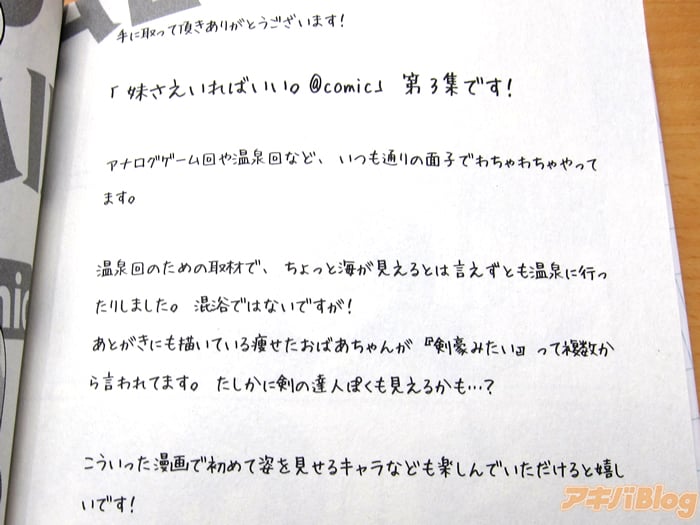 手に取って頂きありがとうございます!
「妹さえいればいい。@comic」 第3集です!
アナログゲーム回や温泉回など、いつも通りの面子でわちゃわちゃやって
ます。
温泉回のための取材で、ちょっと海が見えるとは言えずとも温泉に行っ
たりしました。混浴ではないですが!
あとがきにも描いている痩せたおばあちゃんが『剣豪みたい』って複数か
ら言われてます。たしかに剣の達人ぽくも見えるかも…?
こういった漫画で初めて姿を見せるキャラなども楽しんでいただけると嬉し
いです!
アキバBlog